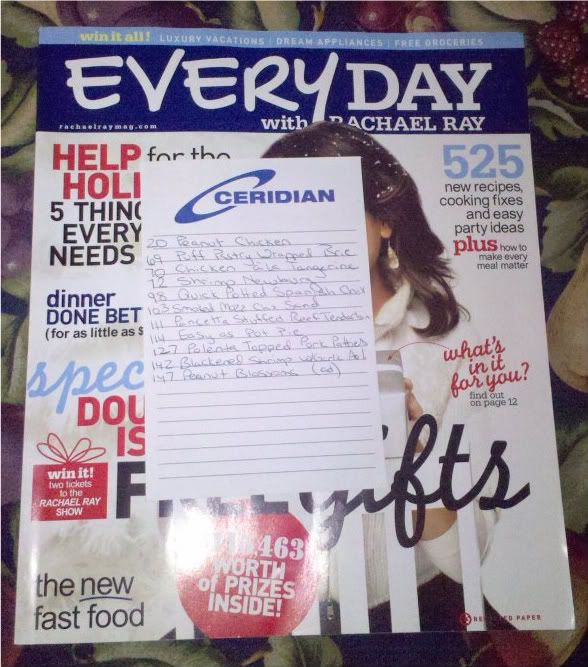 win it all! LUXURY VACATIONS | DREAM APPLIANCES | FREE GROCERIES
EVERY DAY
with RACHAEL RAY
rachaelraymag.com
HELP for the
HOLI
5 THING
EVERY
NEEDS
dinner
DONE BET
(for as little as $
spec
DOU
IS
win it!
two tickets
to the
RACHAEL RAY
SHOW
the new
fast food
CERIDIAN
20 Peanut Chicken
69 Puff Pastry Wrapped Brie
70 Chicken Tangerine
72 Shrimp Newburg
98 Quick Potted Spanish
103 Smoked Mozz Chix Sand
111 Pancetta Stuffed Beef
114 Easy as Pot Pie
127 Polenta Topped Pork Patties
142 Blackened Shrimp w/Garlic
147 Peanut Blossoms (ad)
525
new recipes,
cooking fixes
and easy
party ideas
plus how to
make every
meal matter
what's
in it
for you?
find out
on page 12
gifts
,463
WORTH
of PRIZES
INSIDE!
PAPER